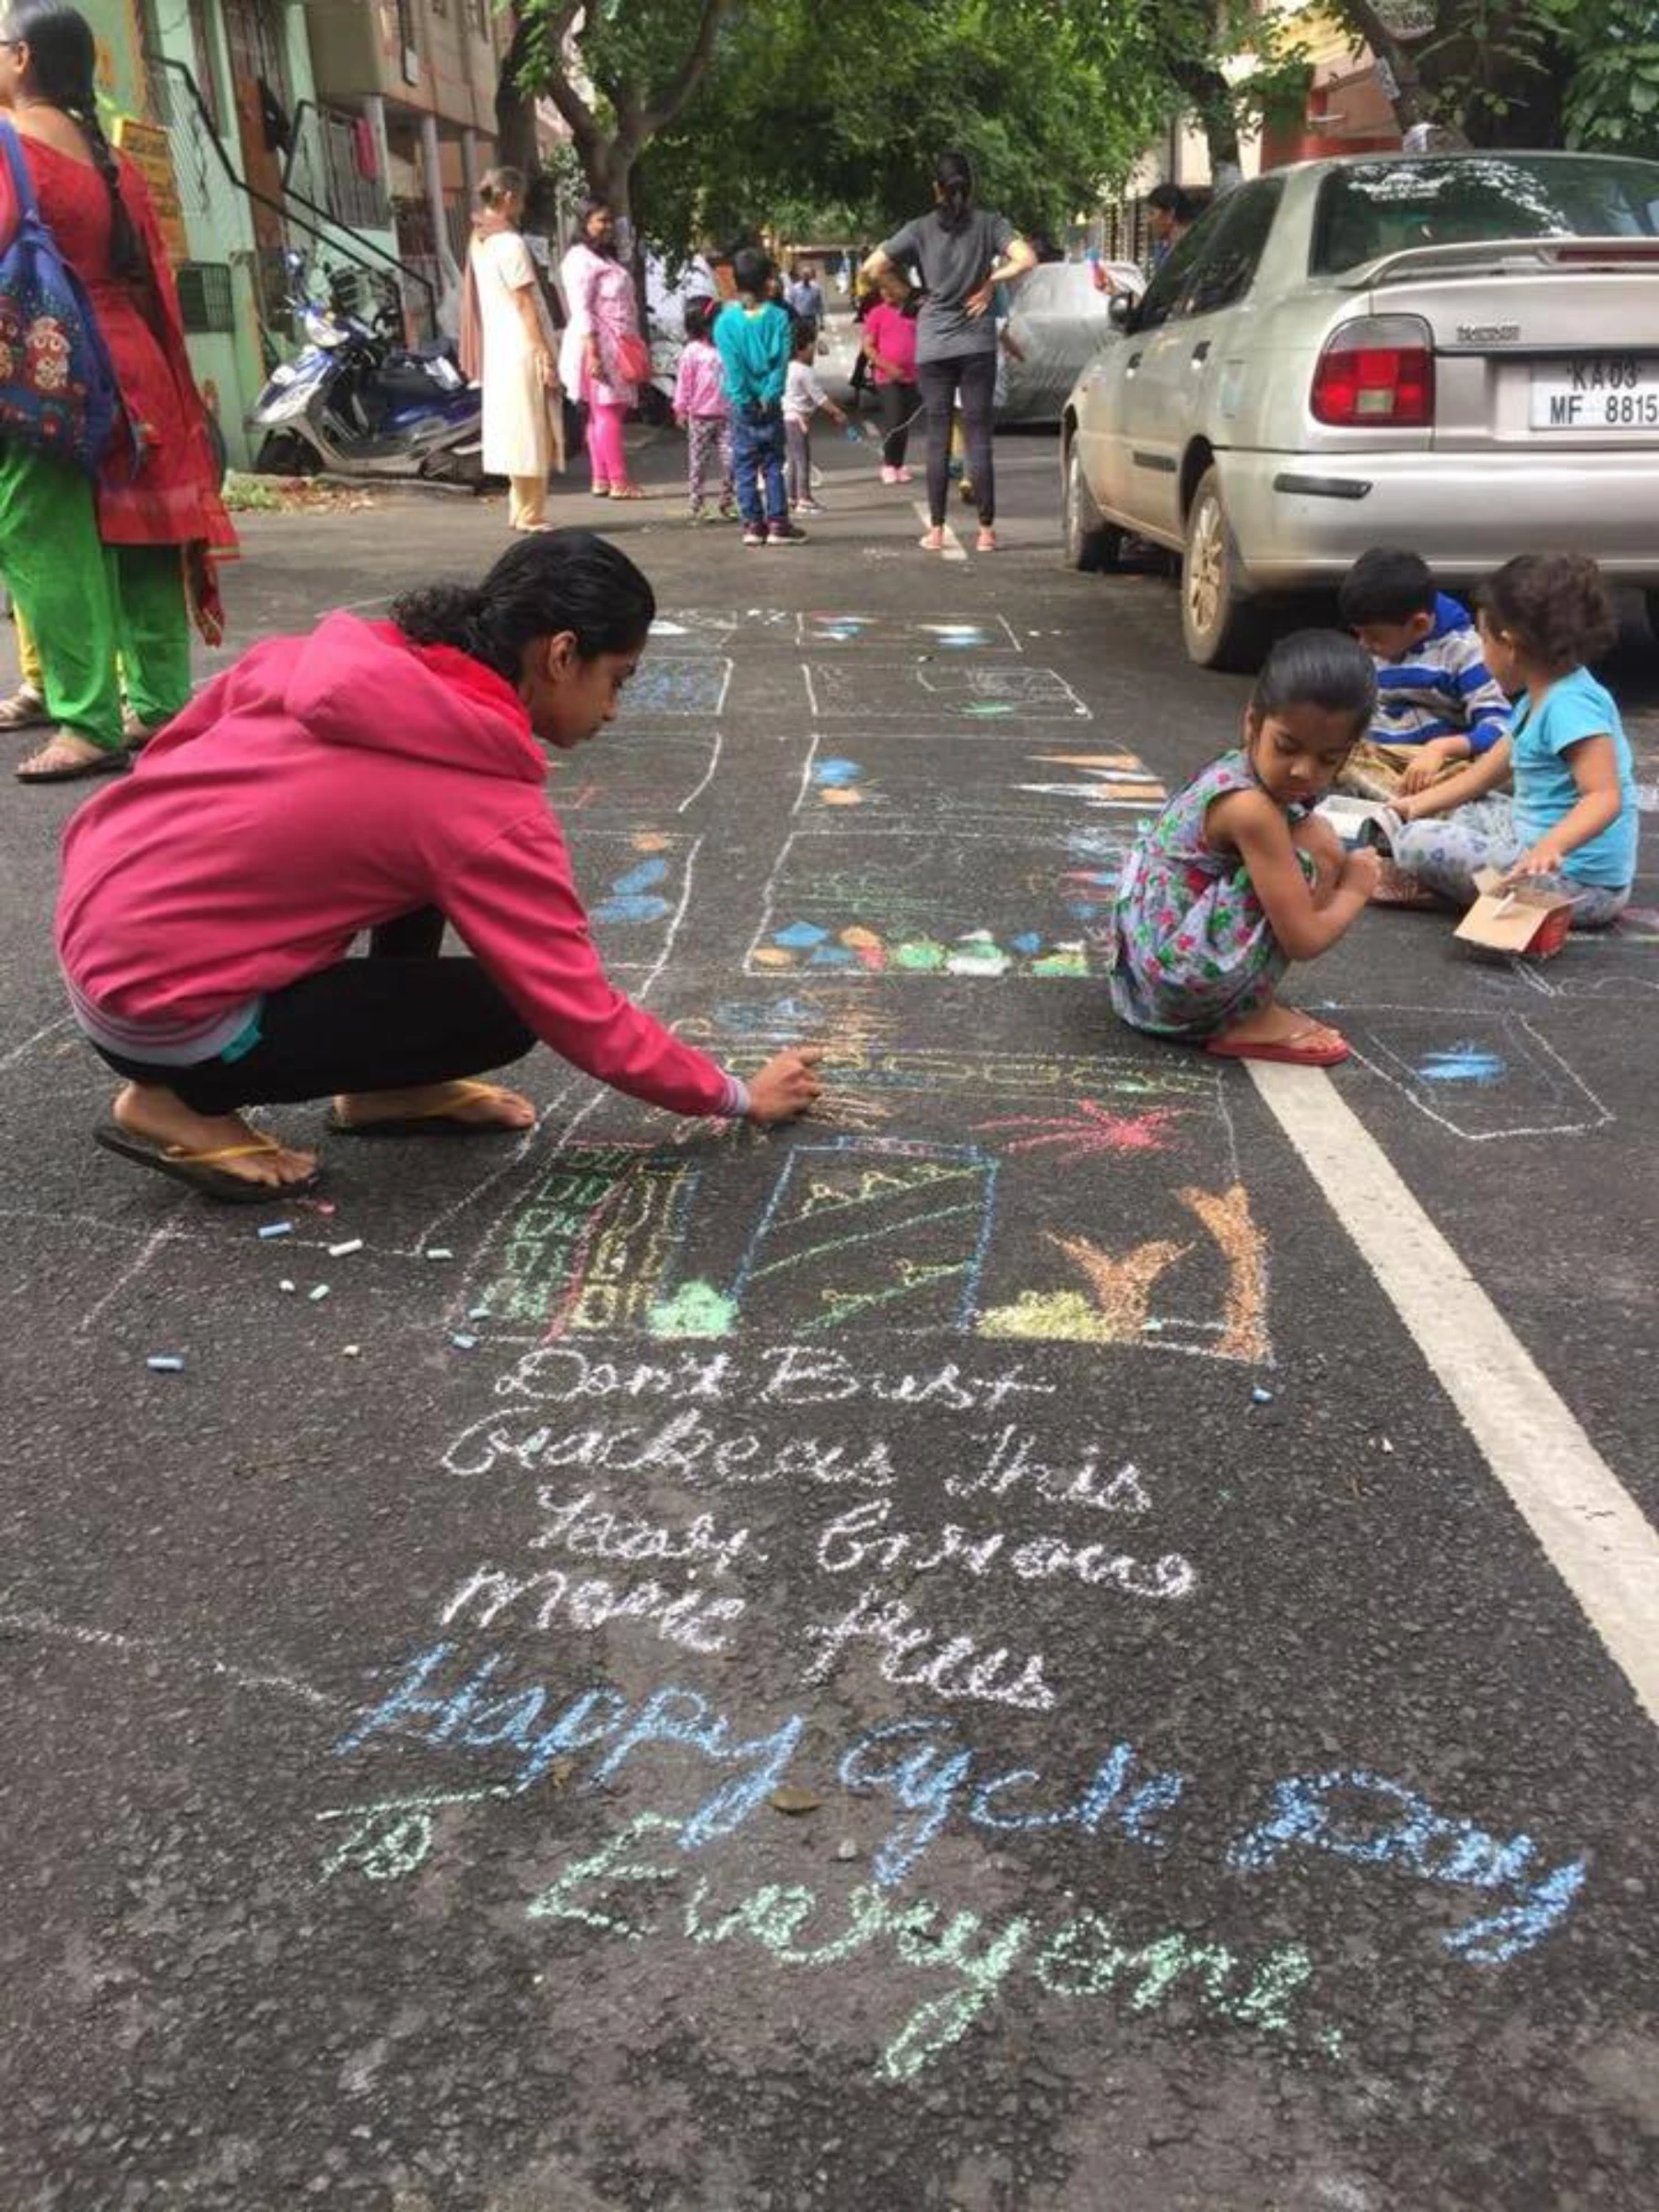 KA03
MF 8815
Don't Bust
Crackers This
Year. Grow
More Trees
Happy Cycle Day
To Everyone.